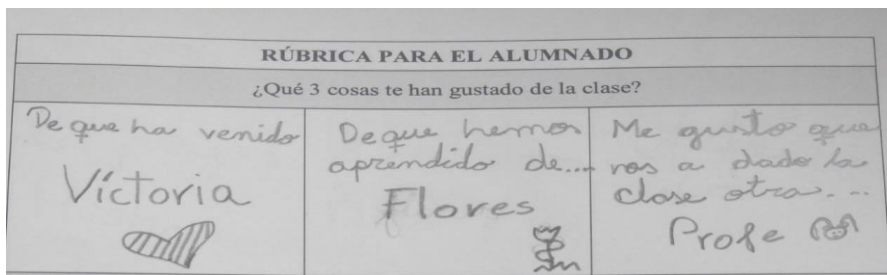 RÚBRICA PARA EL ALUMNADO
¿Qué 3 cosas te han gustado de la clase?
De que ha venido
Victoria
De que hemos
aprendido de....
Flores
Me gusto que
nos a dado la
clase otra...
Profe